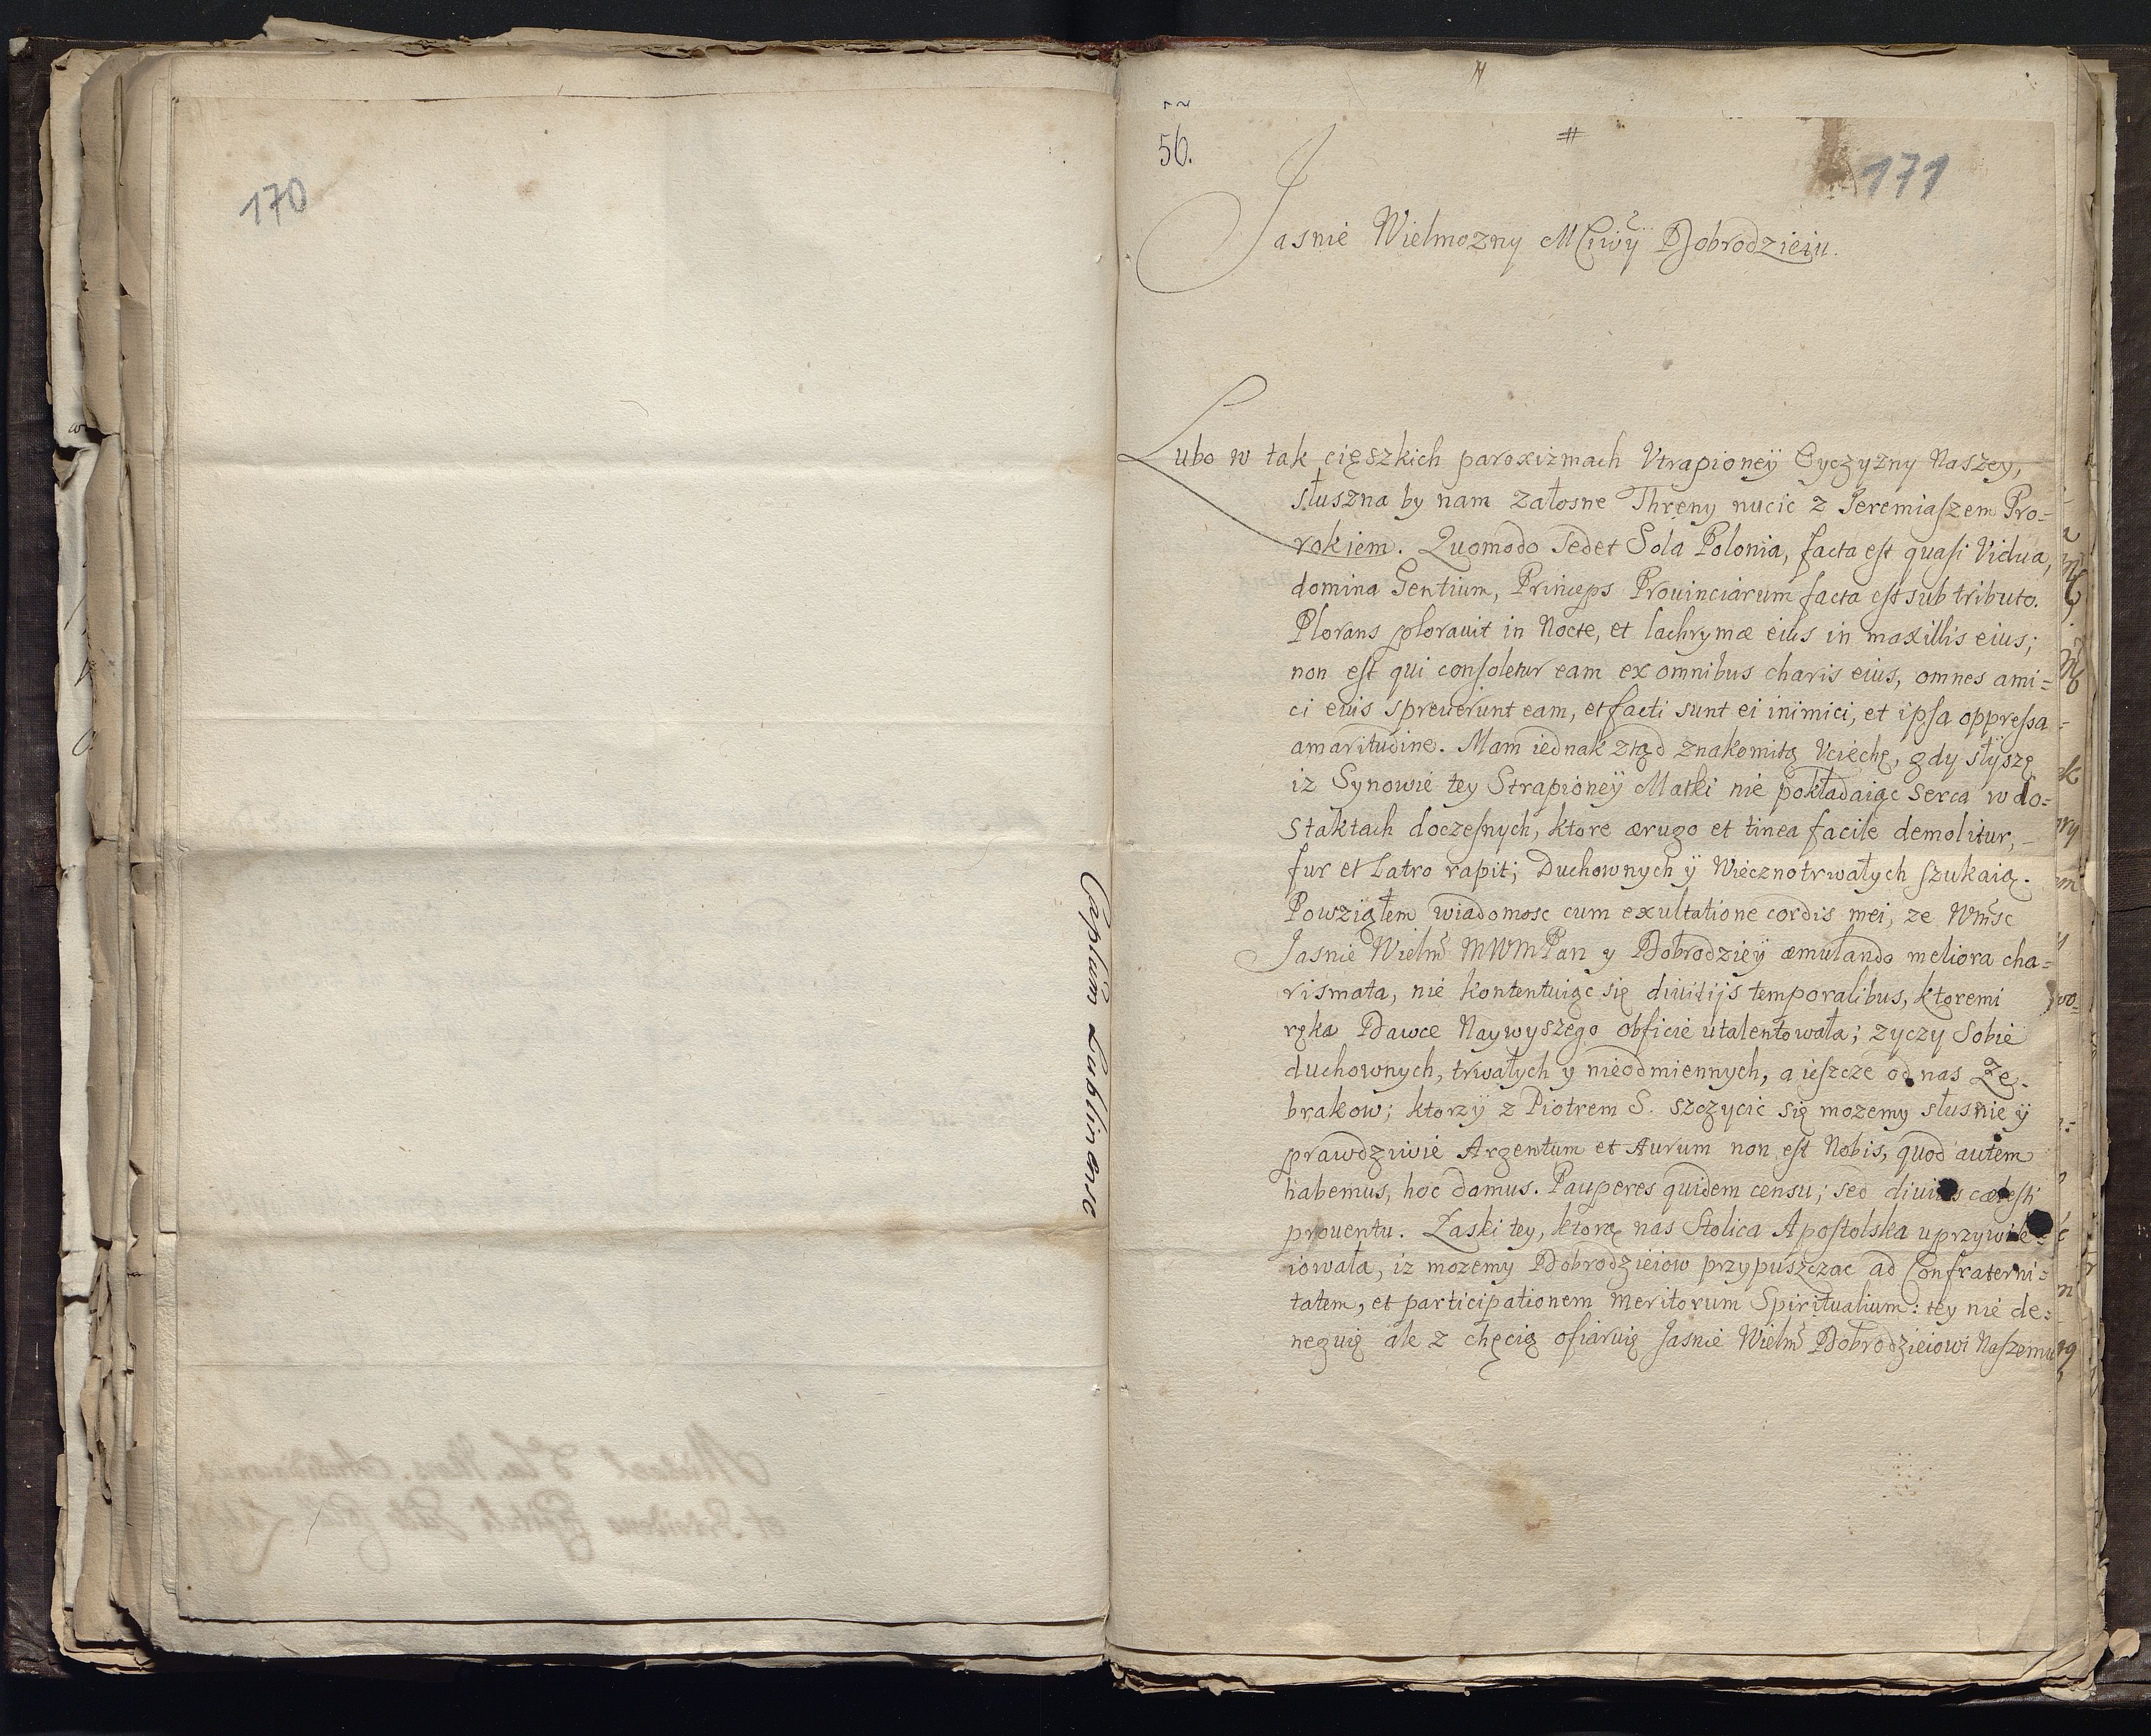 170
Caplum Lublinense
56.
#
171
Jasnie Wielmozny Mciwy Dobrodzieiu.
Lubo w tak cięszkich paroxizmach Vtrapioney Oyczyzny Naszey,
słuszna by nam załosne Threny nucic z Jeremiaszem Pro=
rokiem. Quomodo sedet Sola Polonia, facta est quasi Vidua,
domina Gentium, Princeps Prouinciarum facta est sub tributo.
Plorans plorauit in Nocte, et lachrymæ eius in maxillis eius;
non est qui consoletur eam ex omnibus charis eius, omnes ami=
ci eius spreuerunt eam, et facti sunt ei inimici, et ipsa oppressa
amaritudine. Mam iednak ztąd znakomitą Vciechę, gdy słyszę
iz Synowie tey Strapioneÿ Matki nie pokładaiąc serca w do=
staktach doczesnych, ktore ærugo et tinea facile demolitur,
fur et Latro rapit; Duchownych ÿ Wiecznotrwałych szukaią.
Powziąłem wiadomosc cum exultatione cordis mei, ze Wmsc
Jasnie Wielm MWMPan y Dobrodzieÿ æmulando meliora cha=
rismata, nie kontentuiąc się diuitijs temporalibus, ktoremi
ręka Dawce Naywyszego obficie utalentowała; zyczy Sobie
duchownych, trwałych y nieodmiennych, a ieszcze od nas Ze=
brakow; ktorzÿ z Piotrem S. szczycic się mozemy słusnie ÿ
prawdziwie Argentum et Aurum non est Nobis, quod autem
habemus, hoc damus. Pauperes quidem censu; sed diuites cælesti
prouentu. Łaski tey, ktorą nas Stolica Apostolska uprzywile=
iowała, iz mozemy Dobrodzieiow przypuszczac ad Confraterni=
tatem, et participationem meritorum Spiritualium: tey nie de=
neguię ale z chęcią ofiaruię Jasnie Wielm Dobrodzieiowi Naszemu